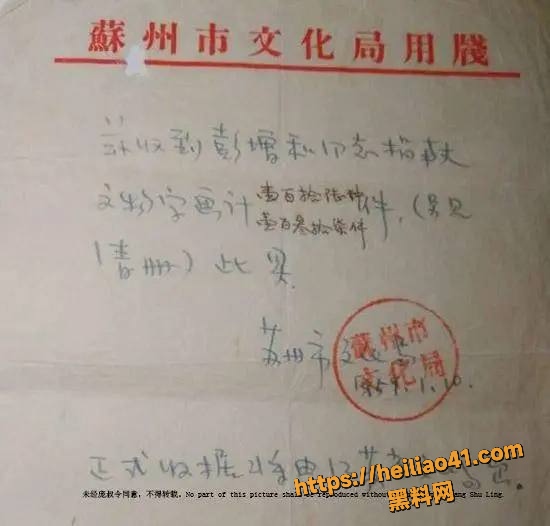 蘇州市文化局用牋
兹收到彭增和同志捐献
文物字画计壹百拾陆种
壹百叁拾柒件件,(另见
清册)此
苏州市文化局
蘇州市
文化局
1959.1.10.
正式收据将由江苏
未经庞叔令同意,不得转载。No part of this picture shall be reproduced without Pang Shu Ling.
https://heiliao41.com
黑料网